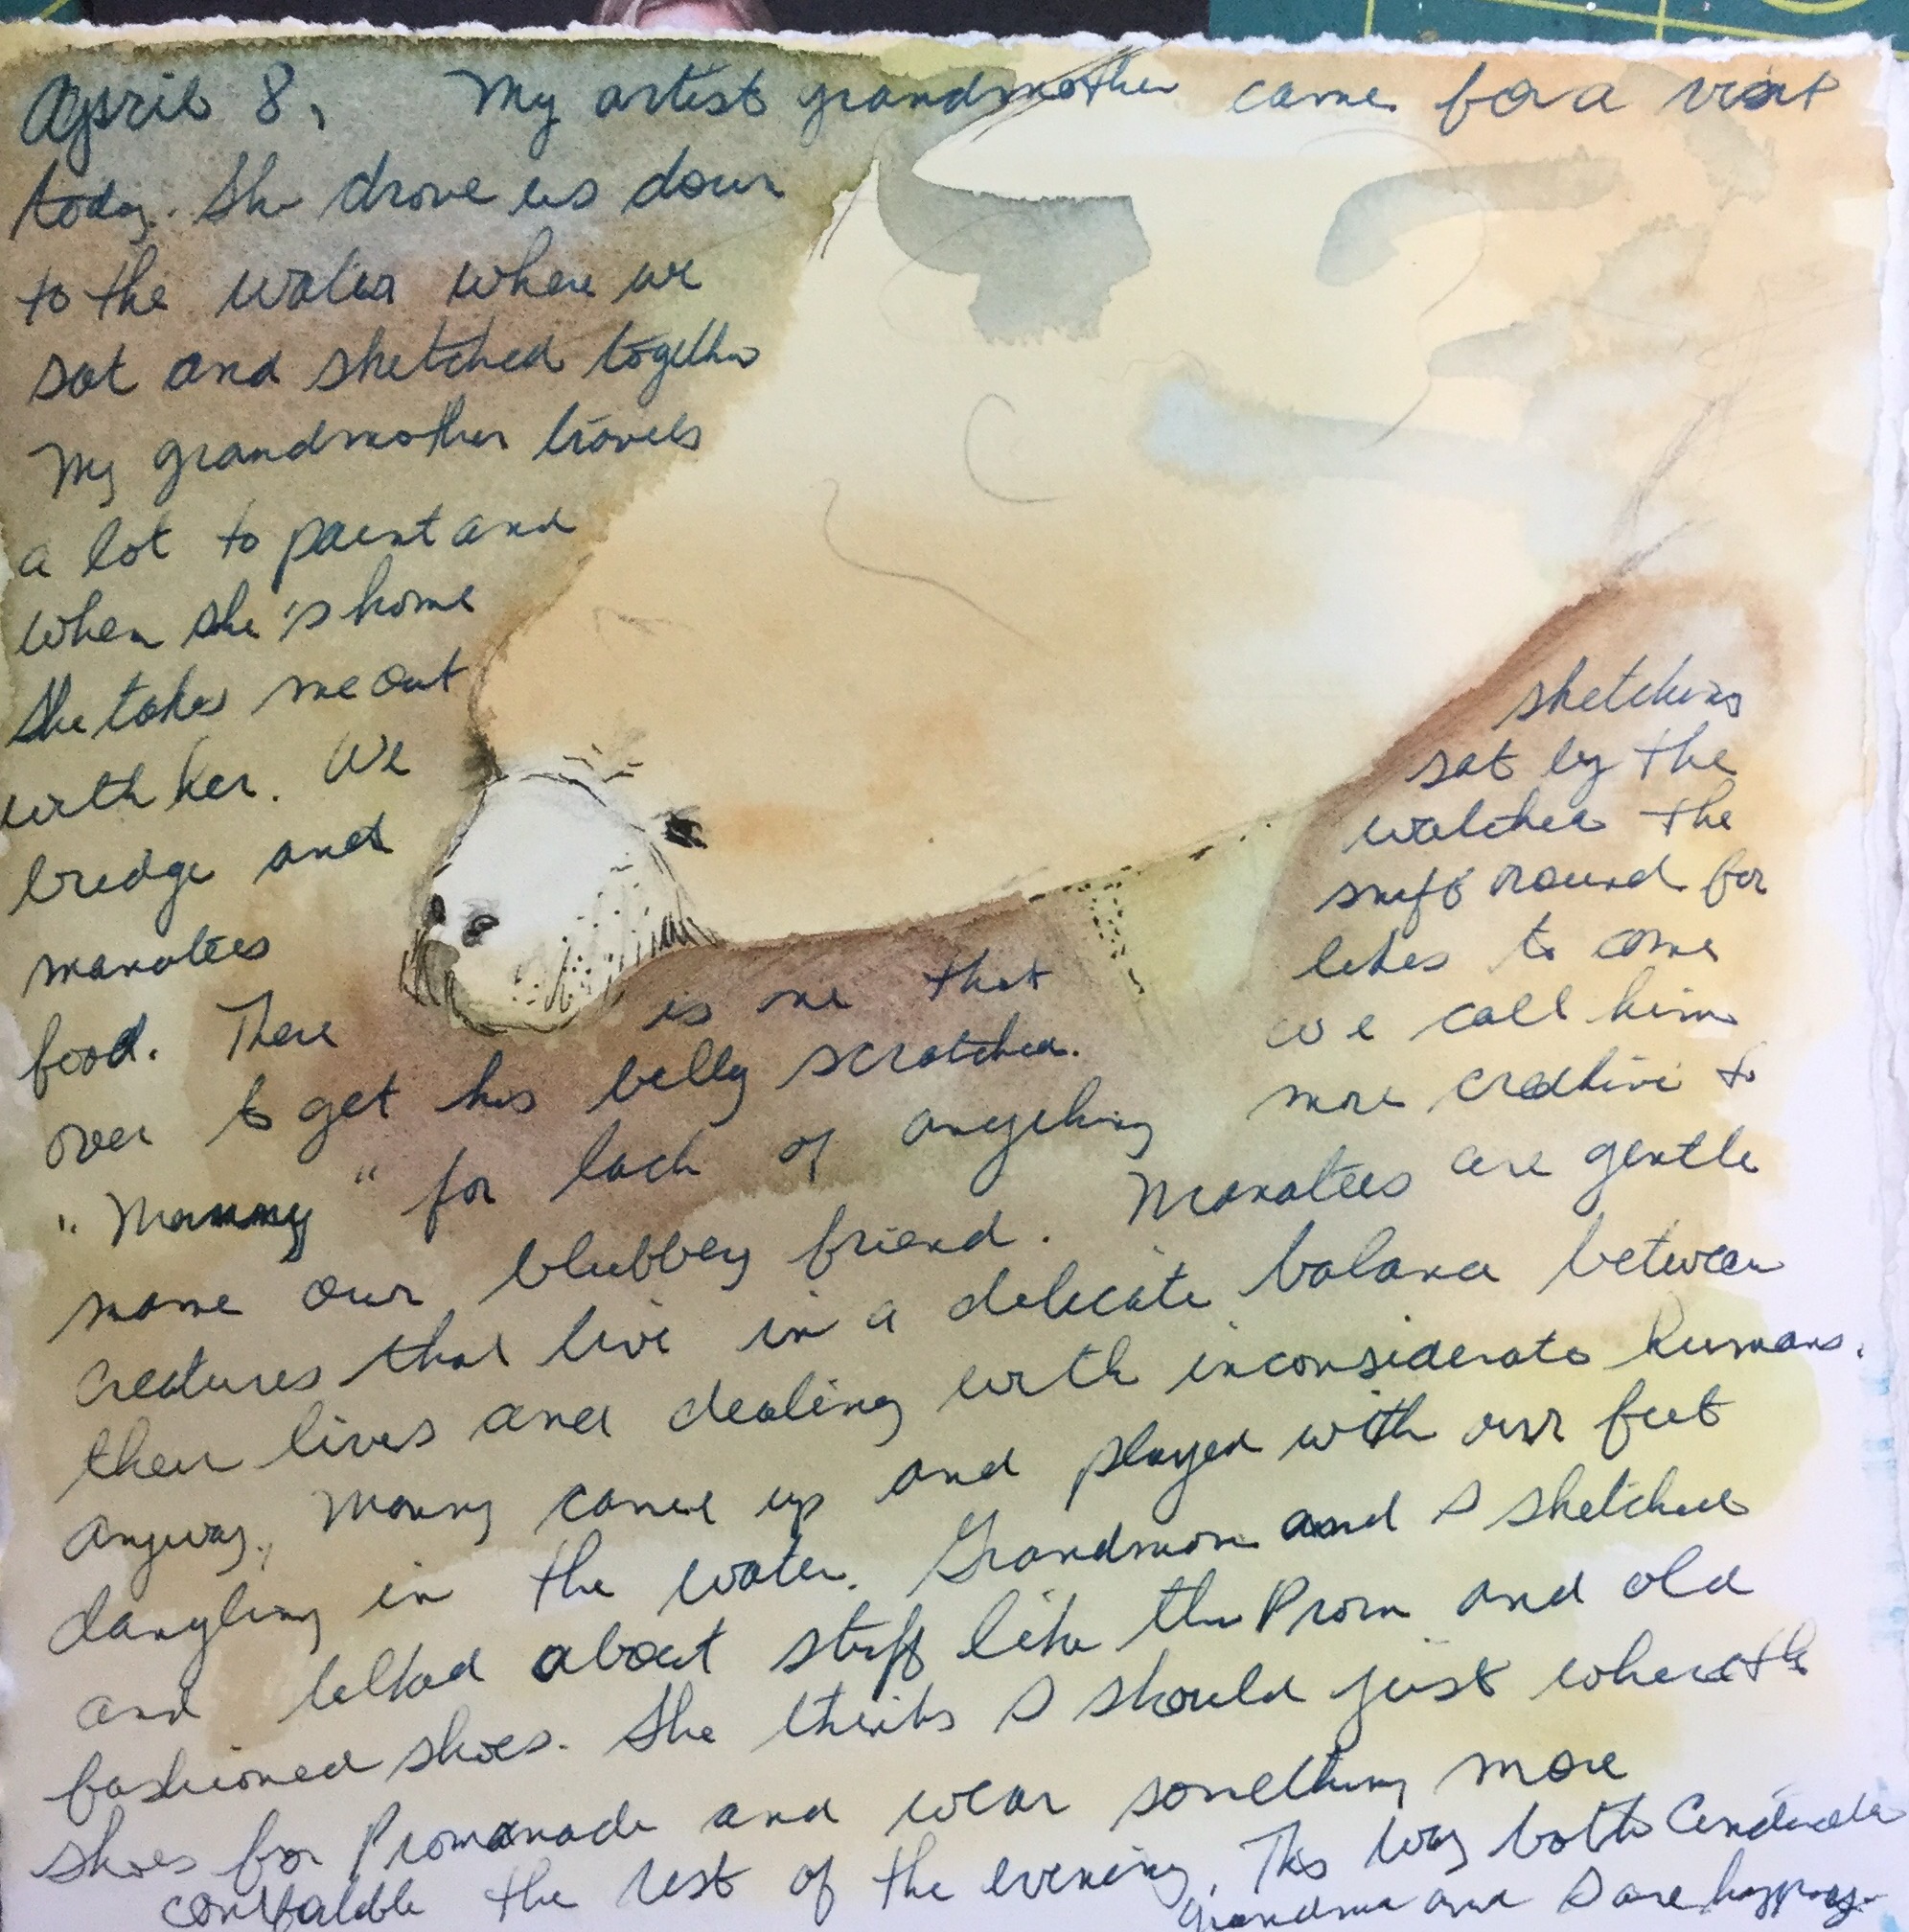 April 8, My artist grandmother came for a visit
today. She drove us down
to the water where we
sat and sketched together
My grandmother travels
a lot to paint and
when she's home
she takes me out sketching
with her. We sat by the
bridge and watched the
manatees sniff round for
food. There is one that likes to come
over to get his belly scratched. we call him
"Manny" for lack of anything more creative to
name our blubbey friend. Manatees are gentle
creatures that live in a delicate balance between
their lives and dealing with inconsiderate humans.
Anyway, Manny came up and played with our feet
dangling in the water. Grandmom and I sketched
and talked about stuff like the Prom and old
fashioned shoes. She thinks I should just where the
shoes for Promanade and wear something more
the rest of the evening. This way both
Grandma and I are happy